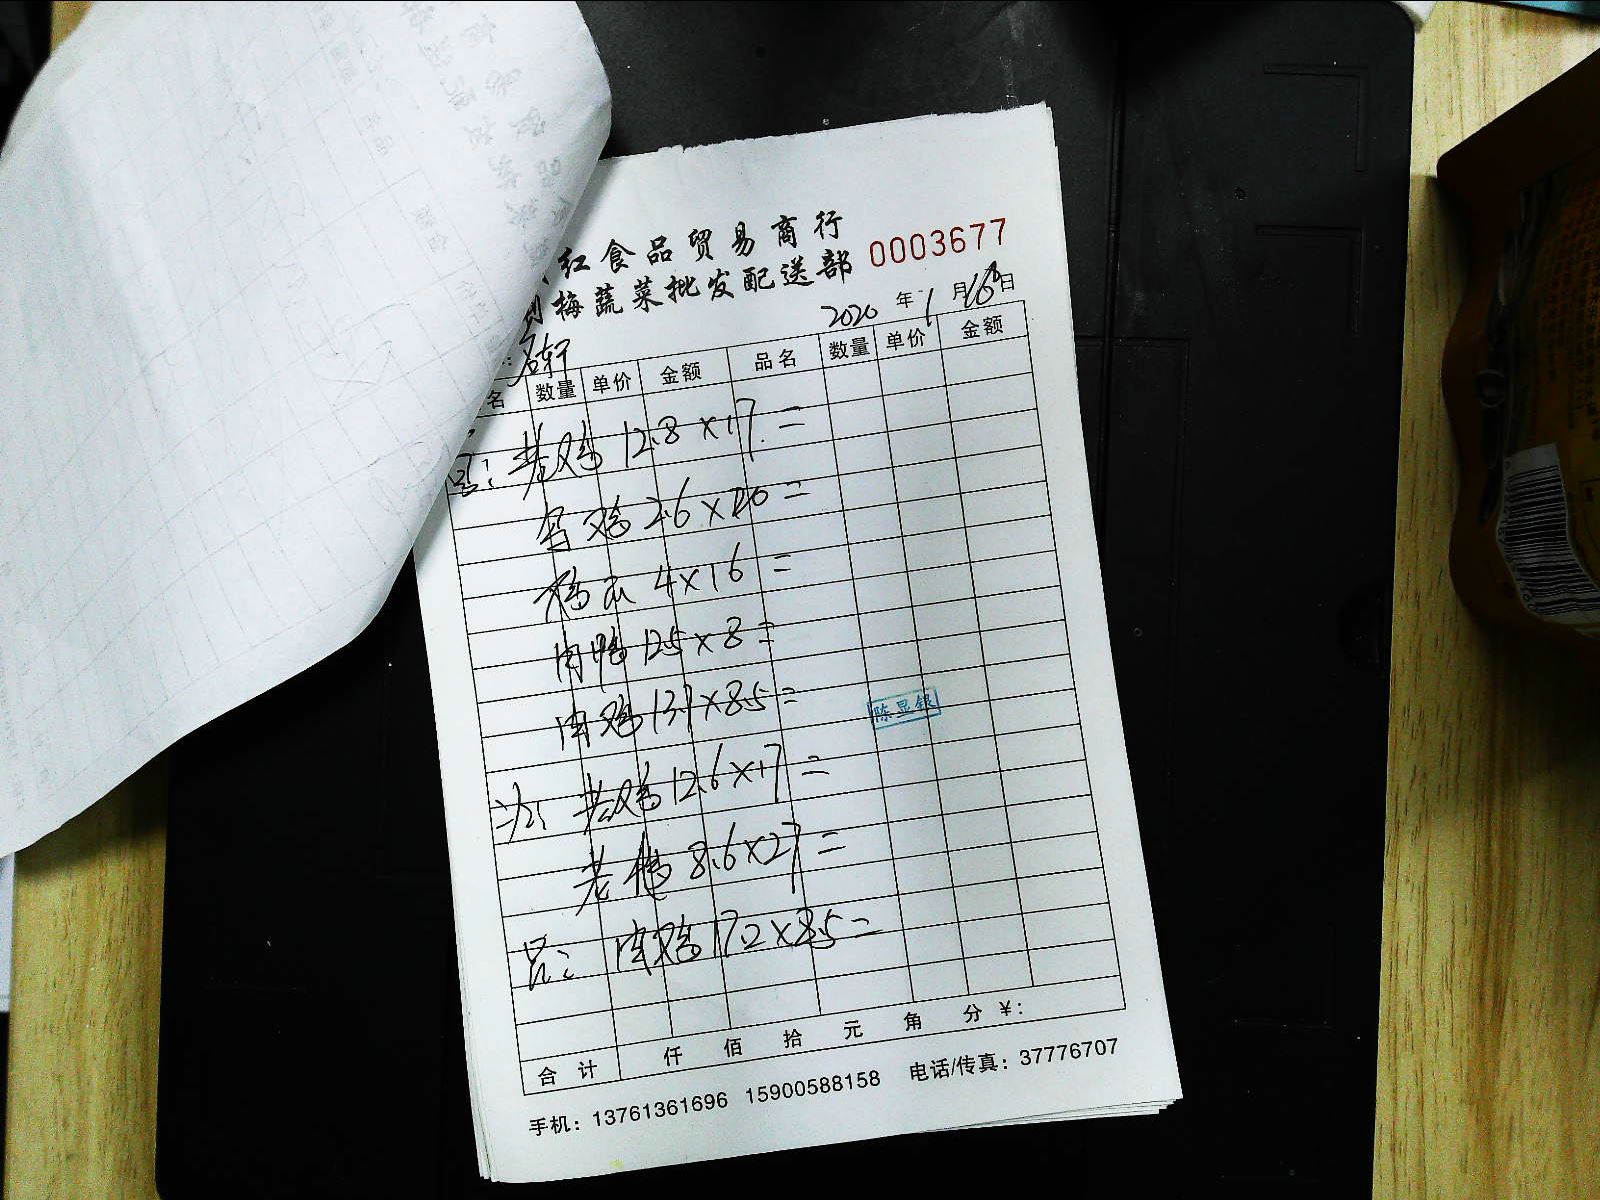 红食品贸易商行
梅蔬菜批发配送部 0003677
2020年1月16日
轩
名 数量 单价 金额 品名 数量 单价 金额
老鸡 12.8×17=
乌鸡 2.6×20=
4×16=
肉鸭 12.5×8=
肉鸡 13.9×8.5=
老鸡 12.6×17=
老鸭 8.6×27=
肉鸡 17.2×8.5=
陈显银
合计 仟 佰 拾 元 角 分 ¥:
手机：13761361696 15900588158 电话/传真：37776707